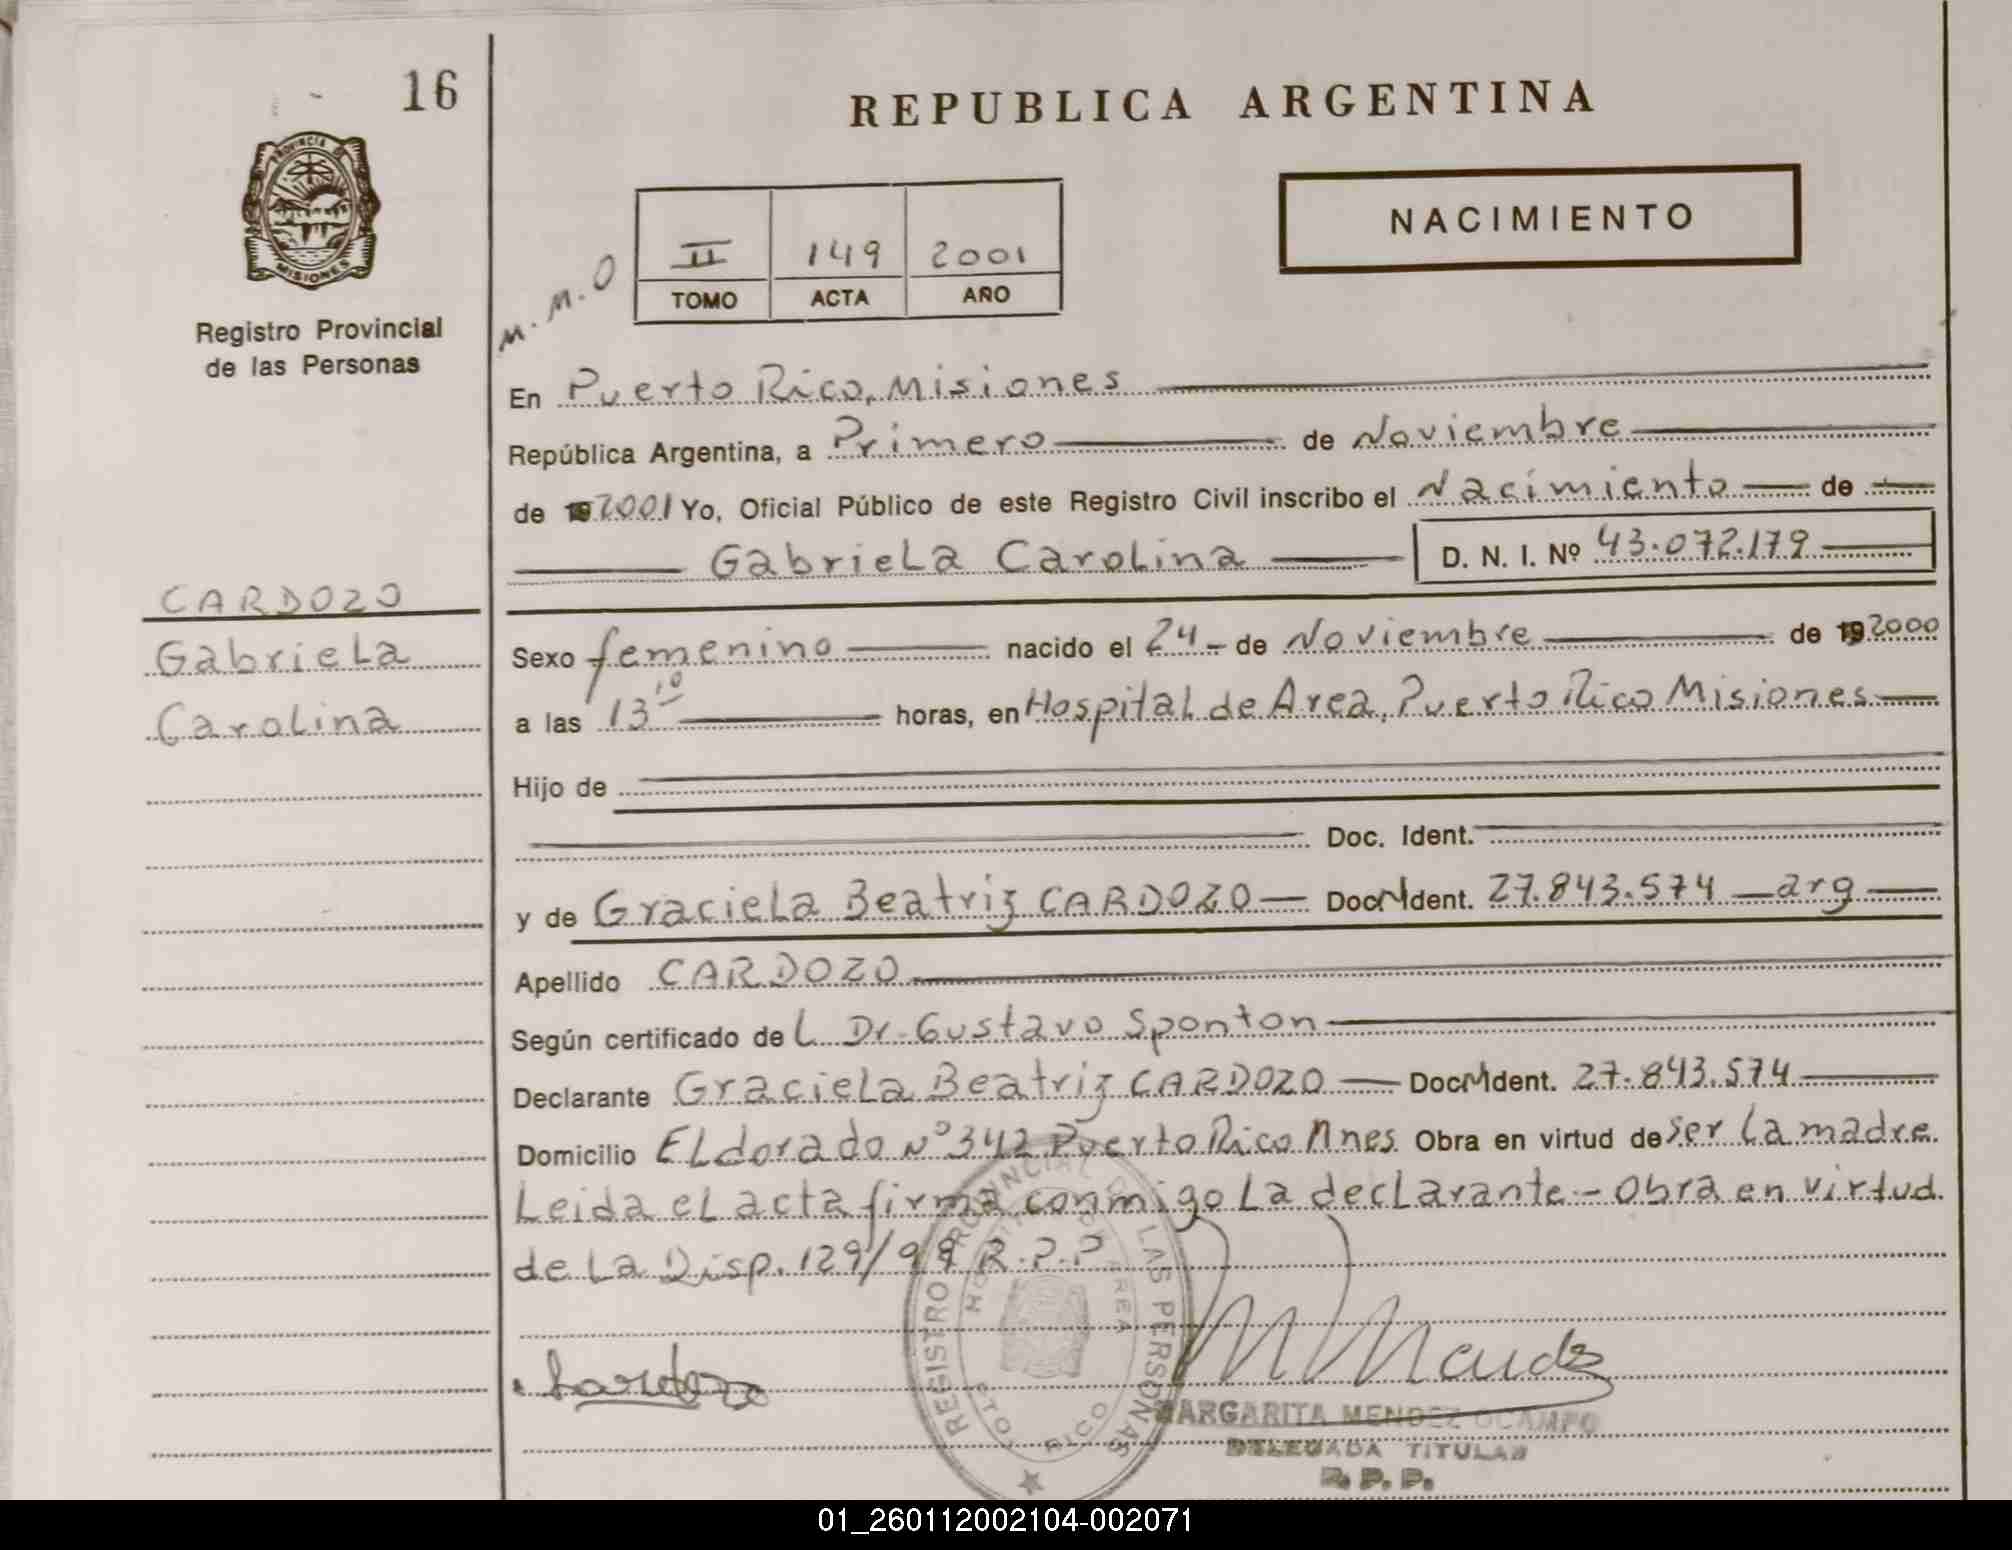 16
PROVINCIA DE
MISIONES
Registro Provincial
de las Personas
CARDOZO
Gabriela
Carolina
REPUBLICA ARGENTINA
NACIMIENTO
M.M.O
II 149 2001
TOMO ACTA AÑO
En Puerto Rico, Misiones
República Argentina, a Primero de Noviembre
de 19 2001 Yo, Oficial Público de este Registro Civil inscribo el Nacimiento de
Gabriela Carolina D. N. I. Nº 43.072.179
Sexo femenino nacido el 24 de Noviembre de 19 2000
a las 13 10 horas, en Hospital de Area, Puerto Rico Misiones
Hijo de
Doc. Ident.
y de Graciela Beatriz CARDOZO Doc. Ident. 27.843.574 arg
Apellido CARDOZO
Según certificado de L Dr. Gustavo Sponton
Declarante Graciela Beatriz CARDOZO Doc. Ident. 27.843.574
Domicilio Eldorado Nº 342 Puerto Rico Mnes Obra en virtud de ser la madre.
Leida el acta firma conmigo la declarante - Obra en virtud
de la Disp. 129/99 R.P.P
REGISTRO PROVINCIAL DE LAS PERSONAS
HOSPITAL DE AREA
PTO. RICO
Cardozo
M Mendez
MARGARITA MENDEZ OCAMPO
DELEGADA TITULAR
R. P. P.
01_260112002104-002071